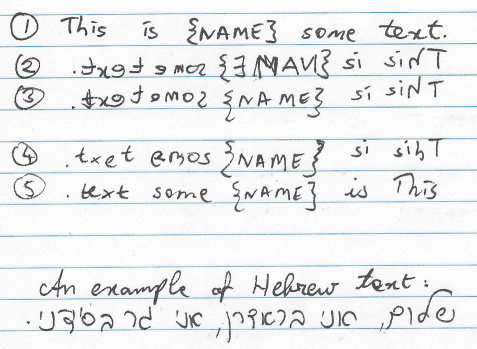 ① This is {NAME} some text.
② .txet emos {EMAN} si sihT
③ .txet emos {NAME} si sihT
④ .txet emos {NAME} si sihT
⑤ . text some {NAME} is This
An example of Hebrew text:
שלום, אני אני גר